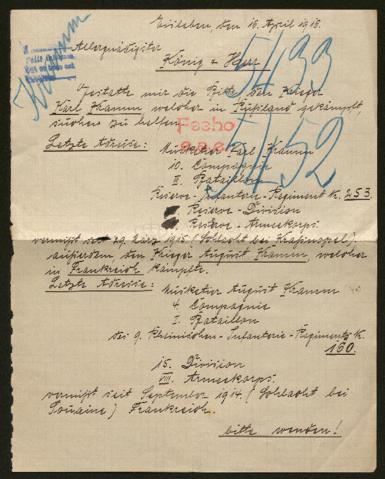 Eisleben, den 16. April 1918.
Allergnädigster
König u. Herr!
Gestatte mir die Bitte den Krieger
Karl Kramm welcher in Rußland gekämpft,
suchen zu helfen.
Letzte Adresse: Musketier Karl Kramm
10. Compagnie
II. Bataillon
Reserve-Infanterie-Regiment N. 253.
Reserve-Division
Reserve-Armeekorps
vermißt seit 29. März 1915 (Schlacht bei Krasnopol),
außerdem den Krieger August Kramm, welcher
in Frankreich kämpfte.
Letzte Adresse: Musketier August Kramm
4. Compagnie
I. Bataillon
des 9. Rheinischen-Infanterie-Regiments N.
160.
15. Division
VIII. Armeekorps.
vermißt seit September 1914. (Schlacht bei
) Frankreich.
bitte wenden!
Kramm
5433
5152